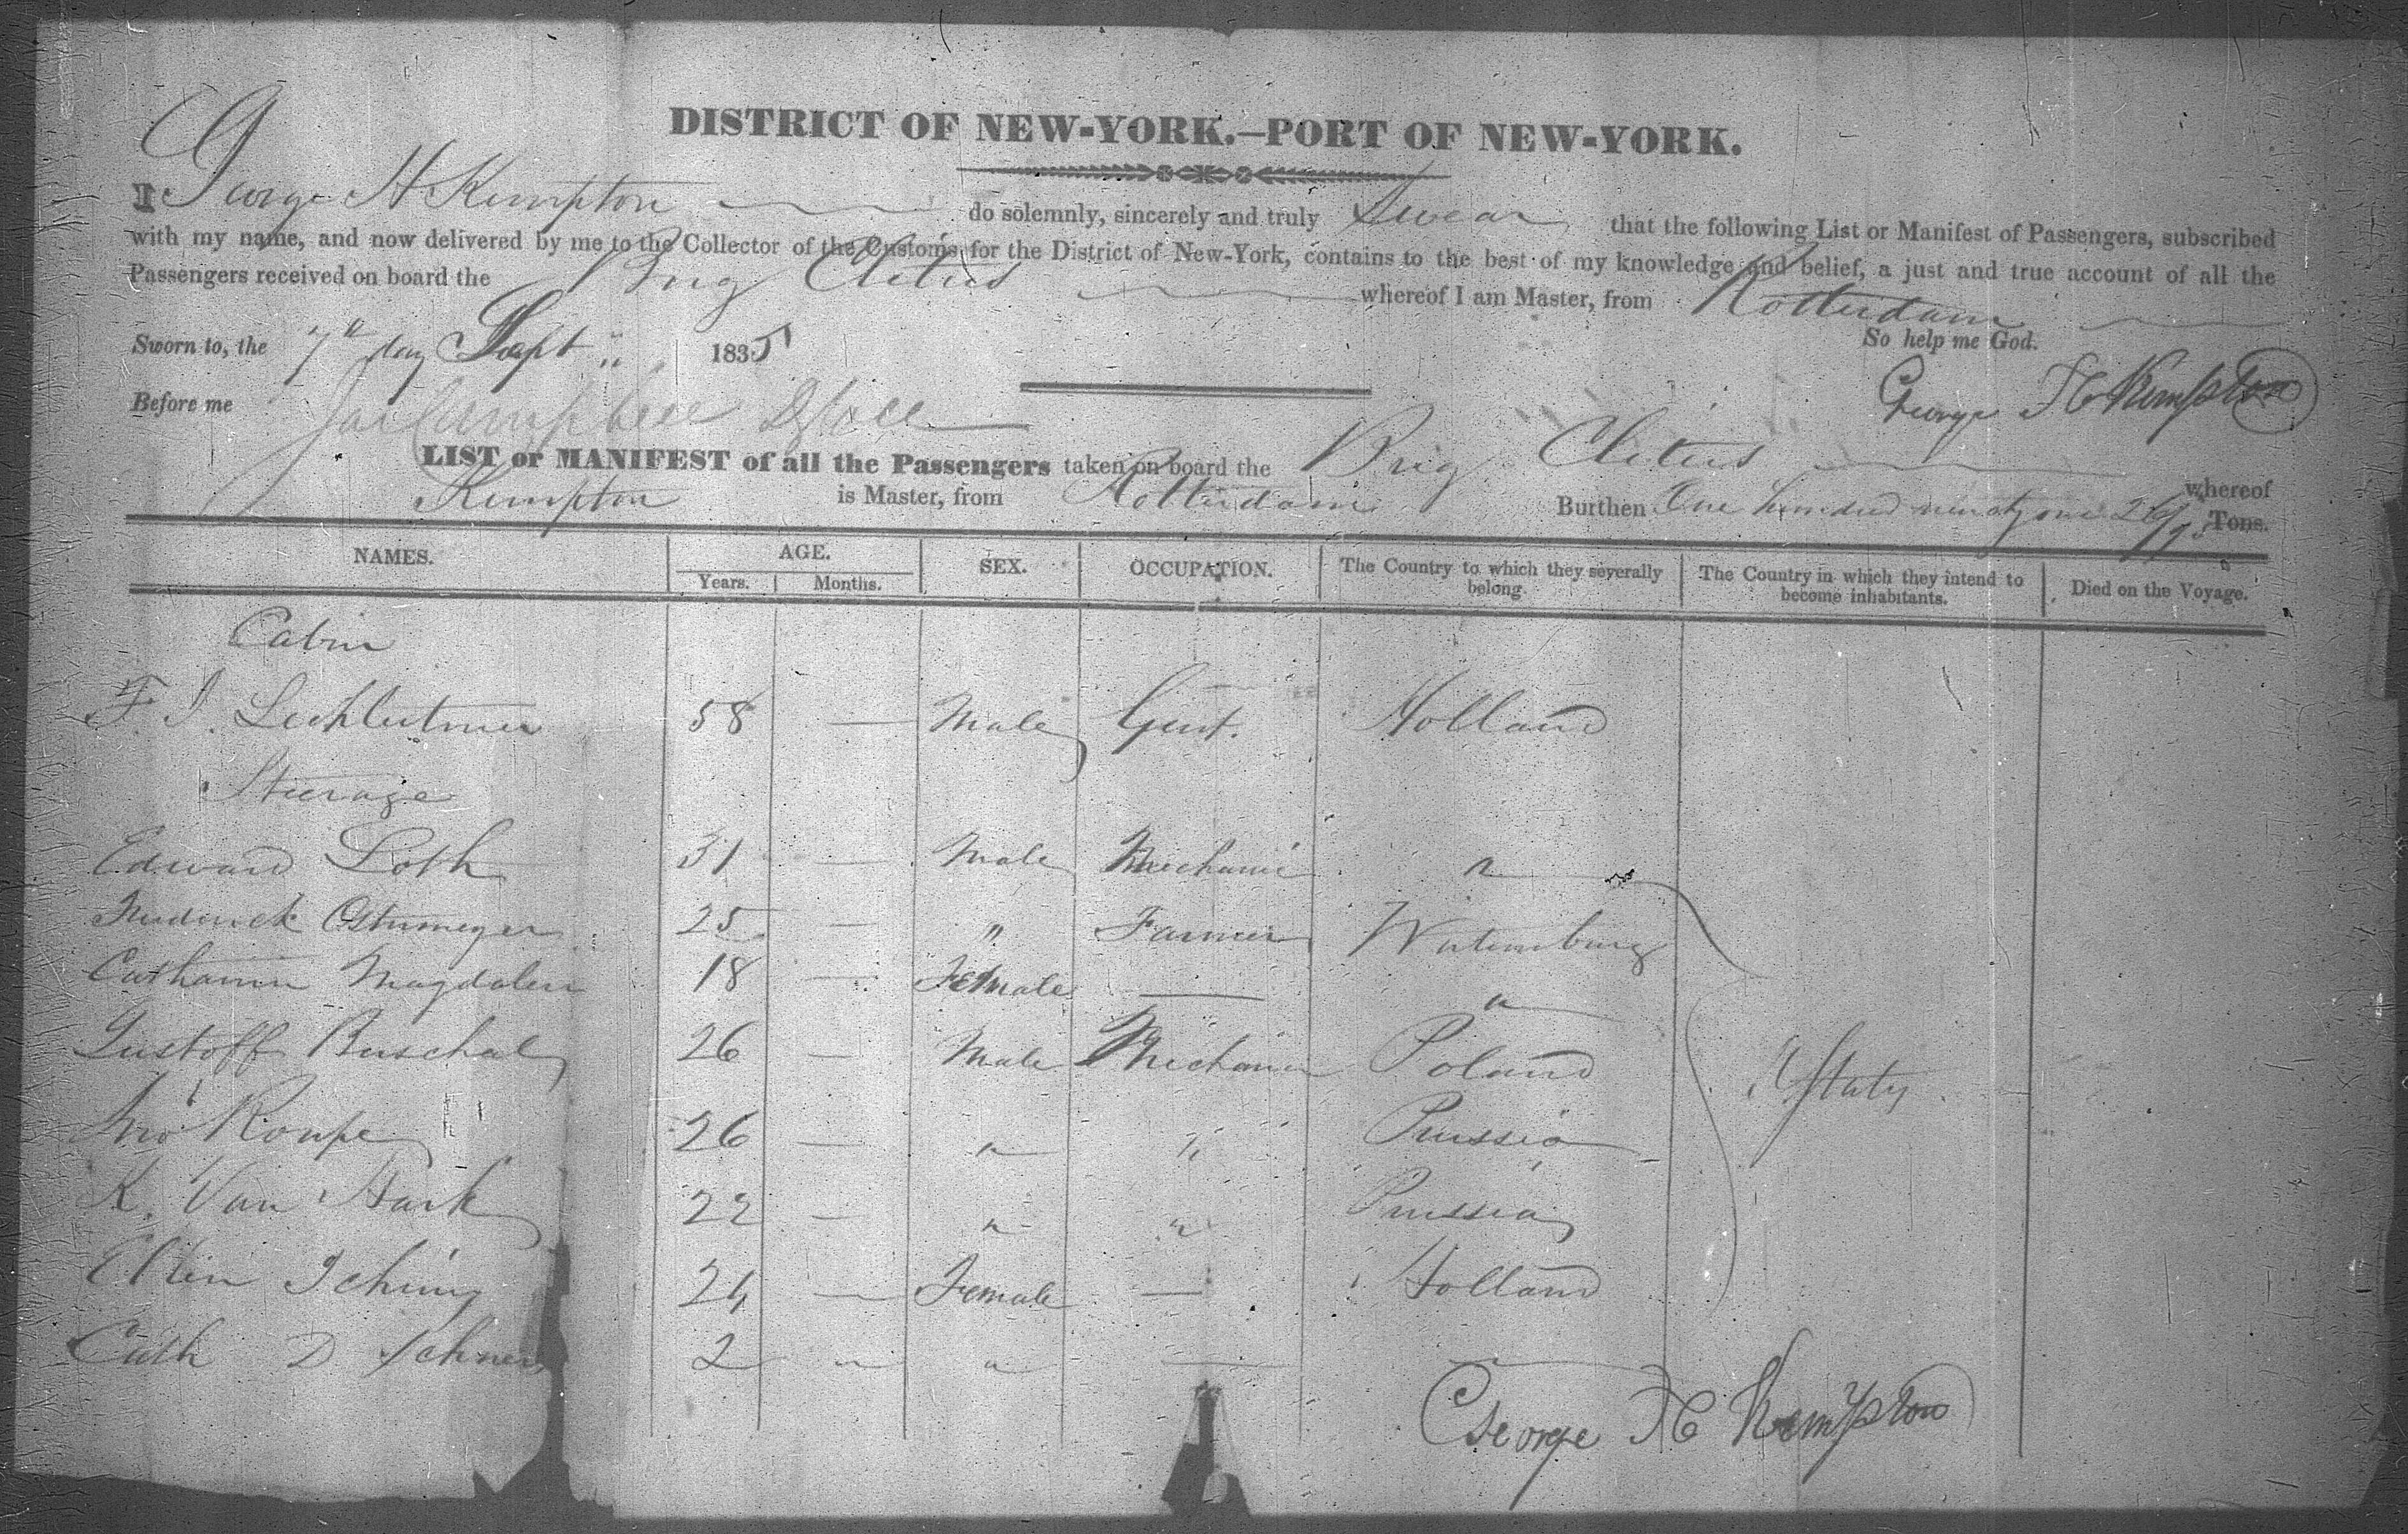 DISTRICT OF NEW-YORK.—PORT OF NEW-YORK.
I George H Kempton do solemnly, sincerely and truly Swear that the following List or Manifest of Passengers, subscribed
with my name, and now delivered by me to the Collector of the Customs for the District of New-York, contains to the best of my knowledge and belief, a just and true account of all the
Passengers received on board the Brig Cletus whereof I am Master, from Rotterdam
So help me God.
Sworn to, the 7th day Sept 1835
George H Kempton
Before me Jas Campbell
LIST or MANIFEST of all the Passengers taken on board the Brig Cletus whereof
Kempton is Master, from Rotterdam Burthen One hundred ninety one Tons.
NAMES. AGE. SEX. OCCUPATION. The Country to which they severally belong. The Country in which they intend to become inhabitants. Died on the Voyage.
Years. Months.
Cabin
F. J. Lechleitner 58 — Male Gent. Holland
Steerage
Edward Loth 31 — Male Mechanic "
Frederick Ostumeyer 25 — " Farmer Wurtemburg
Catharine Magdalen 18 — Female — "
Gustoff Buschal 26 — Male Mechanic Poland
U States
Jno Roupe 26 — " " Prussia
K. Van Hark 22 — " " Prussia
Ellen 24 — Female — Holland
Cath D 2 " " — "
George H Kempton